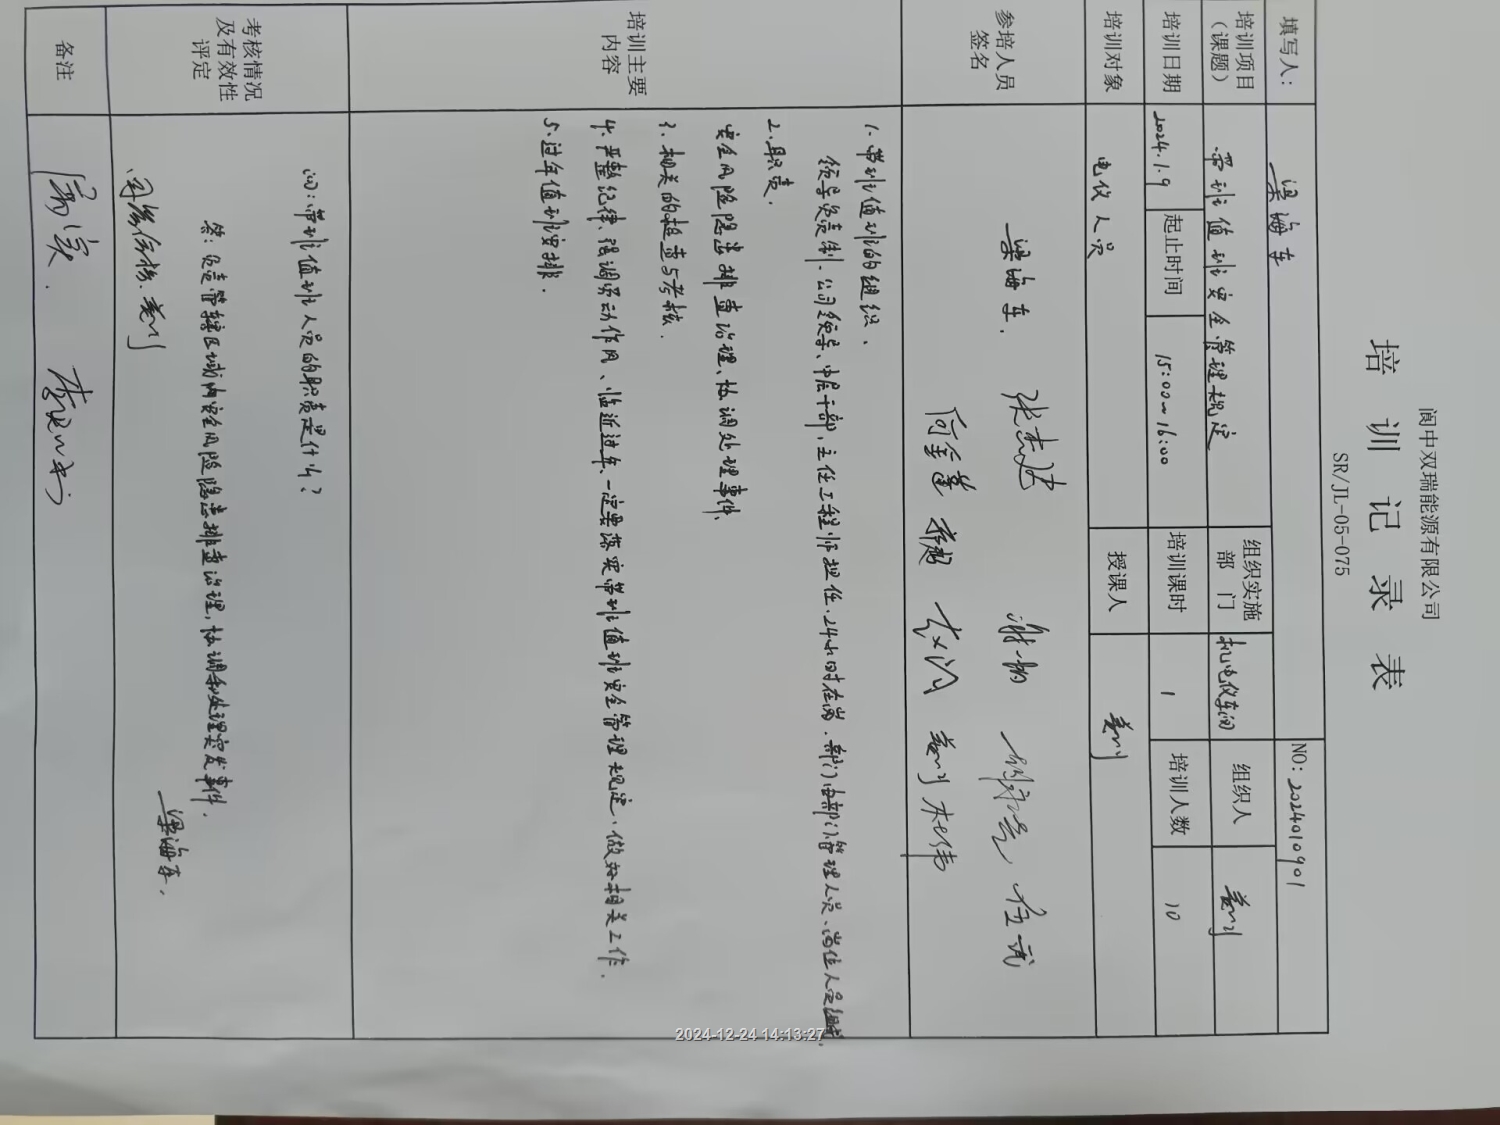 阆中双瑞能源有限公司
培训记录表
SR/JL-05-075
填写人: 梁海车 NO: 2024010901
培训项目（课题） 带班值班安全管理规定 组织实施部门 机电仪车间 组织人
培训日期 2024.1.9 起止时间 15:00~16:00 培训课时 1 培训人数 10
培训对象 电仪人员 授课人
参培人员签名 梁海车.
培训主要内容
1.带班值班的组织、
领导负责制.公司领导、中层干部,主任工程师担任.24小时在岗.部门由部门管理人员、岗位人员组成.
2.职责.
安全风险隐患排查治理、协调处理事件、
3.相关的检查与考核.
4.严整纪律、强调劳动作风、临近过年、一定要落实带班值班安全管理规定,做好相关工作.
5.过年值班安排.
考核情况及有效性评定
问:带班值班人员的职责是什么?
答:负责管辖区域内安全风险隐患排查治理,协调和处理突发事件.
梁海车.
备注
2024-12-24 14:13:27